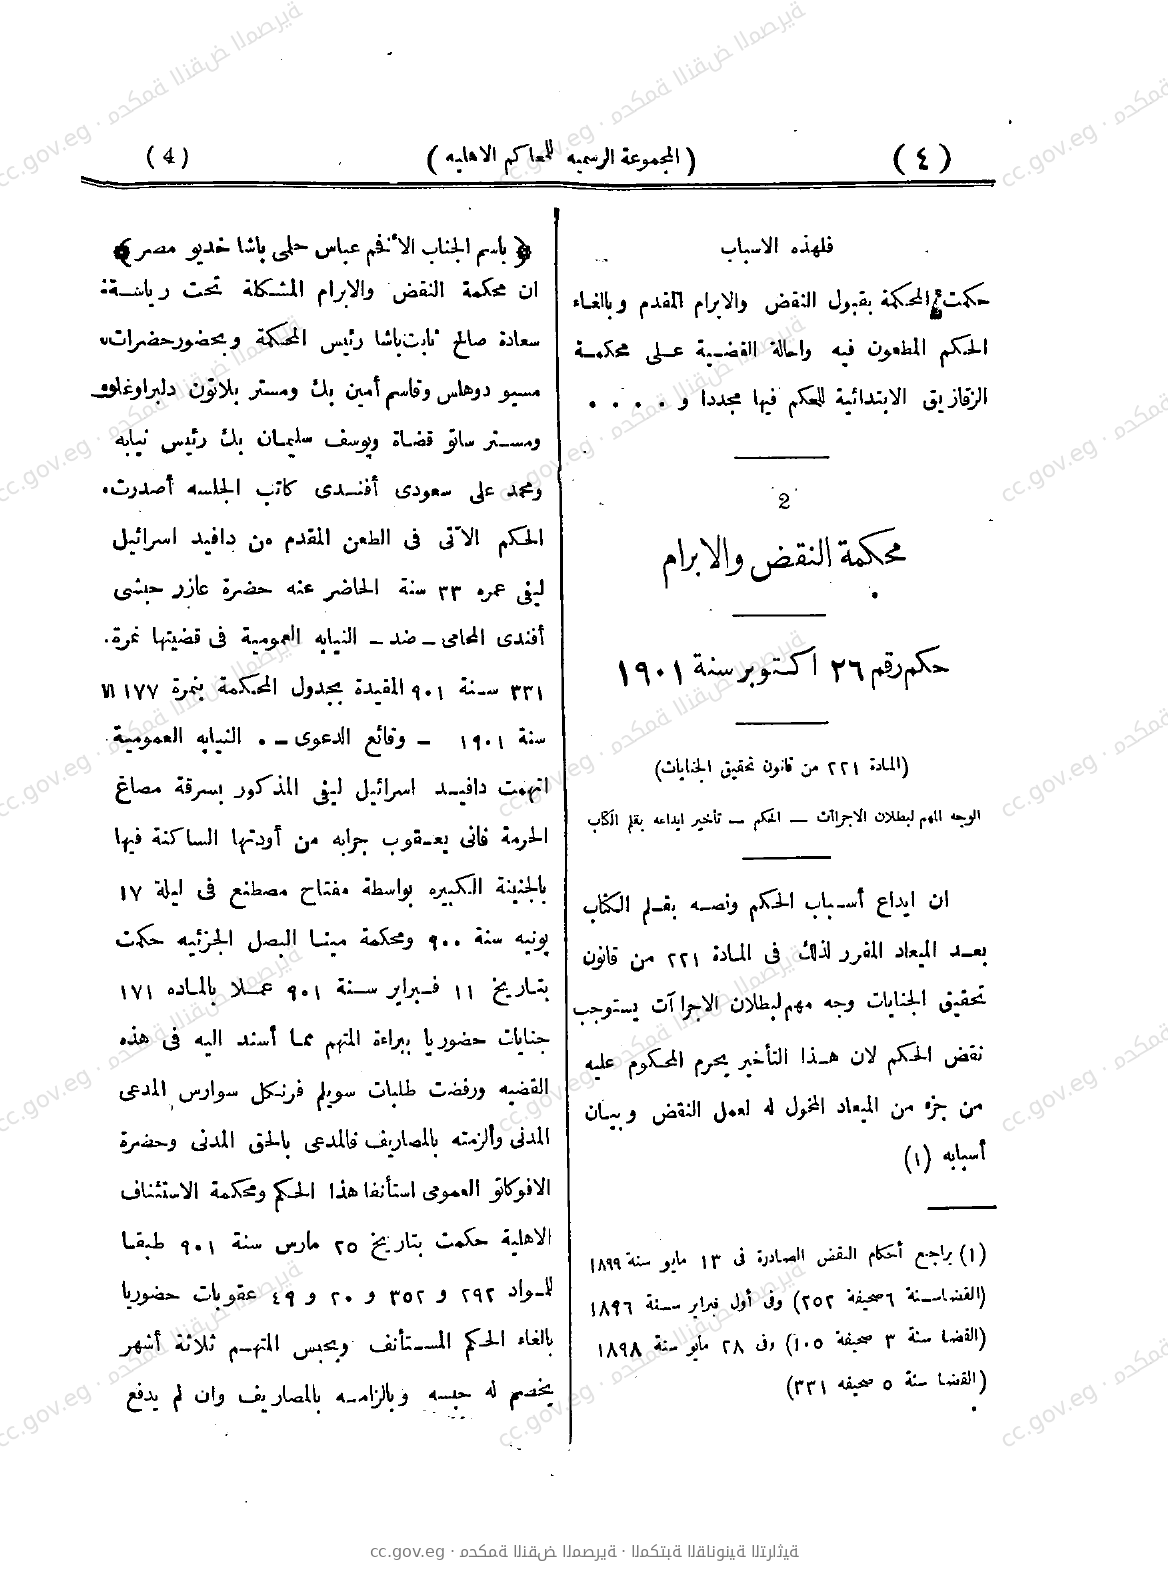 ( ٤ )
( المجموعة الرسميه للمحاكم الاهليه )
( 4 )
فلهذه الاسباب
حكمت المحكمة بقبول النقض والابرام المقدم وبالغاء
الحكم المطعون فيه واحالة القضية على محكمة
الزقازيق الابتدائية للحكم فيها مجددا و . . . .
2
محكمة النقض والابرام
حكم رقم ٢٦ اكتوبر سنة ١٩٠١
(المادة ٢٢١ من قانون تحقيق الجنايات)
الوجه المهم لبطلان الاجراآت — الحكم — تأخير ايداعه بقلم الكتاب
ان ايداع أسباب الحكم ونصه بقلم الكتاب
بعد الميعاد المقرر لذلك فى المادة ٢٢١ من قانون
تحقيق الجنايات وجه مهم لبطلان الاجراآت يستوجب
نقض الحكم لان هذا التأخير يحرم المحكوم عليه
من جزء من الميعاد المخول له لعمل النقض وبيان
أسبابه (١)
(١) يراجع أحكام النقض الصادرة فى ١٣ مايو سنة ١٨٩٩
(القضا سنة ٦ صحيفة ٢٥٢) وفى أول فبراير سنة ١٨٩٦
(القضا سنة ٣ صحيفة ١٠٥) وفى ٢٨ مايو سنة ١٨٩٨
(القضا سنة ٥ صحيفه ٣٣١)
﴿ باسم الجناب الأفخم عباس حلمى باشا خديو مصر ﴾
ان محكمة النقض والابرام المشكلة تحت رياسة
سعادة صالح ثابت باشا رئيس المحكمة وبحضور حضرات
مسيو دوهلس وقاسم أمين بك ومستر بلاتون دلبراوغلو
ومستر ساتو قضاة ويوسف سليمان بك رئيس نيابه
ومحمد على سعودى أفندى كاتب الجلسه أصدرت
الحكم الآتى فى الطعن المقدم من دافيد اسرائيل
ليفى عمره ٣٣ سنة الحاضر عنه حضرة عازر حبشى
أفندى المحامى — ضد — النيابه العمومية فى قضيتها نمرة
٣٣١ سنة ٩٠١ المقيدة بجدول المحكمة بنمرة ١٧٧
سنة ١٩٠١ — وقائع الدعوى — . النيابه العمومية
اتهمت دافيد اسرائيل ليفى المذكور بسرقة مصاغ
الحرمة فانى يعقوب جرابه من أودتها الساكنة فيها
بالجنينة الكبيره بواسطة مفتاح مصطنع فى ليلة ١٧
يونيه سنة ٩٠٠ ومحكمة مينا البصل الجزئيه حكمت
بتاريخ ١١ فبراير سنة ٩٠١ عملا بالماده ١٧١
جنايات حضوريا ببراءة المتهم مما أسند اليه فى هذه
القضيه ورفضت طلبات سويلم فرنكل سوارس المدعى
المدنى وألزمته بالمصاريف فالمدعى بالحق المدنى وحضرة
الافوكاتو العمومى استأنفا هذا الحكم ومحكمة الاستئناف
الاهلية حكمت بتاريخ ٢٥ مارس سنة ٩٠١ طبقا
للمواد ٢٩٢ و ٣٥٢ و ٢٠ و ٤٩ عقوبات حضوريا
بالغاء الحكم المستأنف وبحبس المتهم ثلاثة أشهر
يخصم له حبسه وبالزامه بالمصاريف وان لم يدفع
cc.gov.eg · محكمة النقض المصرية · المكتبة القانونية التراثية